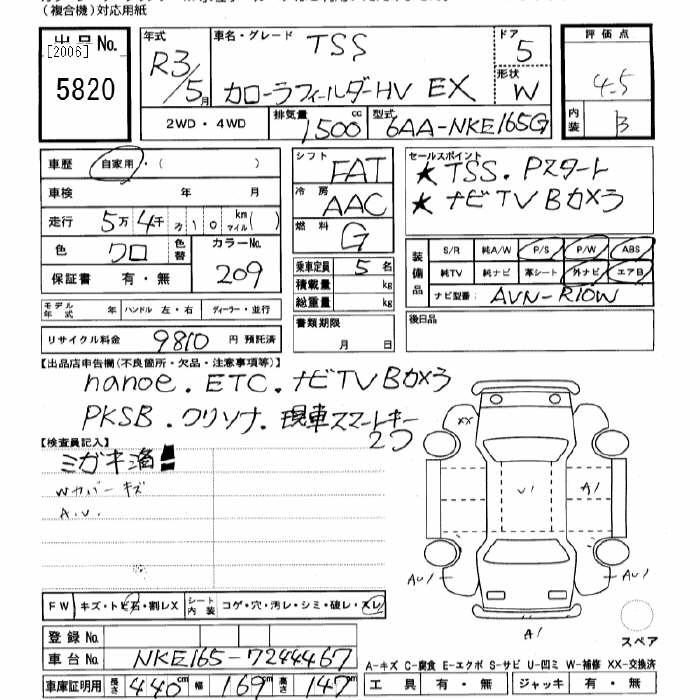 (複合機)対応用紙
出品No.
[2006]
5820
年式
R3/5月
車名・グレード
TSS
カローラフィールダーHV EX
ドア
5
形状
W
評価点
4.5
内装
B
2WD・4WD
排気量
1500cc
型式
6AA-NKE165G
車歴
自家用・( )
車検 年 月
走行 5万4千 10 km マイル( )
色 クロ
色替
カラーNo.
209
保証書 有・無
シフト
FAT
冷房
AAC
燃料
G
乗車定員 5名
積載量 kg
総重量 kg
セールスポイント
★TSS.Pスタート
★ナビTVBカメラ
装備品
S/R 純A/W P/S P/W ABS
純TV 純ナビ 革シート 外ナビ エアB
ナビ型番: AVN-R10W
モデル年式 年 ハンドル 左・右 ディーラー・並行
リサイクル料金 9810 円 預託済
書類期限
月 日
後日品
【出品店申告欄(不良箇所・欠品・注意事項等)】
nanoe.ETC.ナビTVBカメラ
PKSB.クリソナ.現車スマートキー
2つ
【検査員記入】
ミガキ済!!
Wカバーキズ
A.U.
XX
U1
A1
A1
AU1
AU1
A1
スペア
FW キズ・トビ石・割レX
シート内装 コゲ・穴・汚レ・シミ・破レ・スレ
登録No.
車台No. NKE165-7244467
車庫証明用 長さ 440cm 幅 169cm 高さ 147cm
A-キズ C-腐食 E-エクボ S-サビ U-凹ミ W-補修 XX-交換済
工具 有・無 ジャッキ 有・無